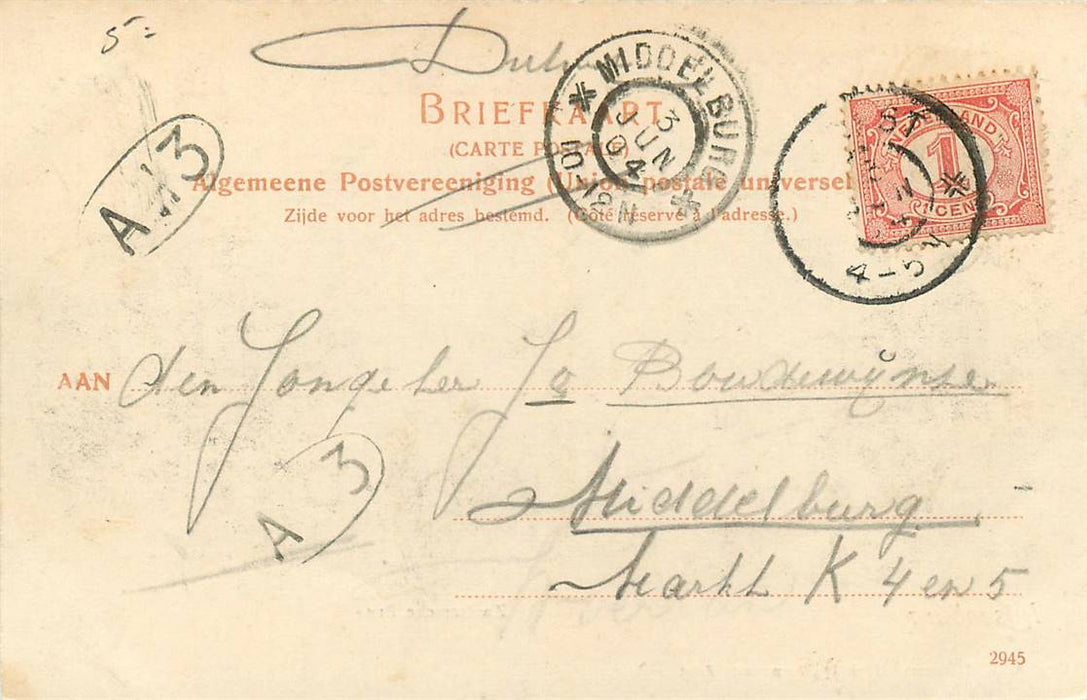 5=
BRIEFKAART
(CARTE POSTALE)
Algemeene Postvereeniging (Union postale universel
Zijde voor het adres bestemd. (Côté réservé à l'adresse.)
MIDDELBURG
3
JUN
04
10-12 N
NEDERLAND
1
CENT
4-5 N
A 3
AAN den Jongeheer Jo Boudewijnse
Middelburg
Markt K 4 en 5
A 3
2945